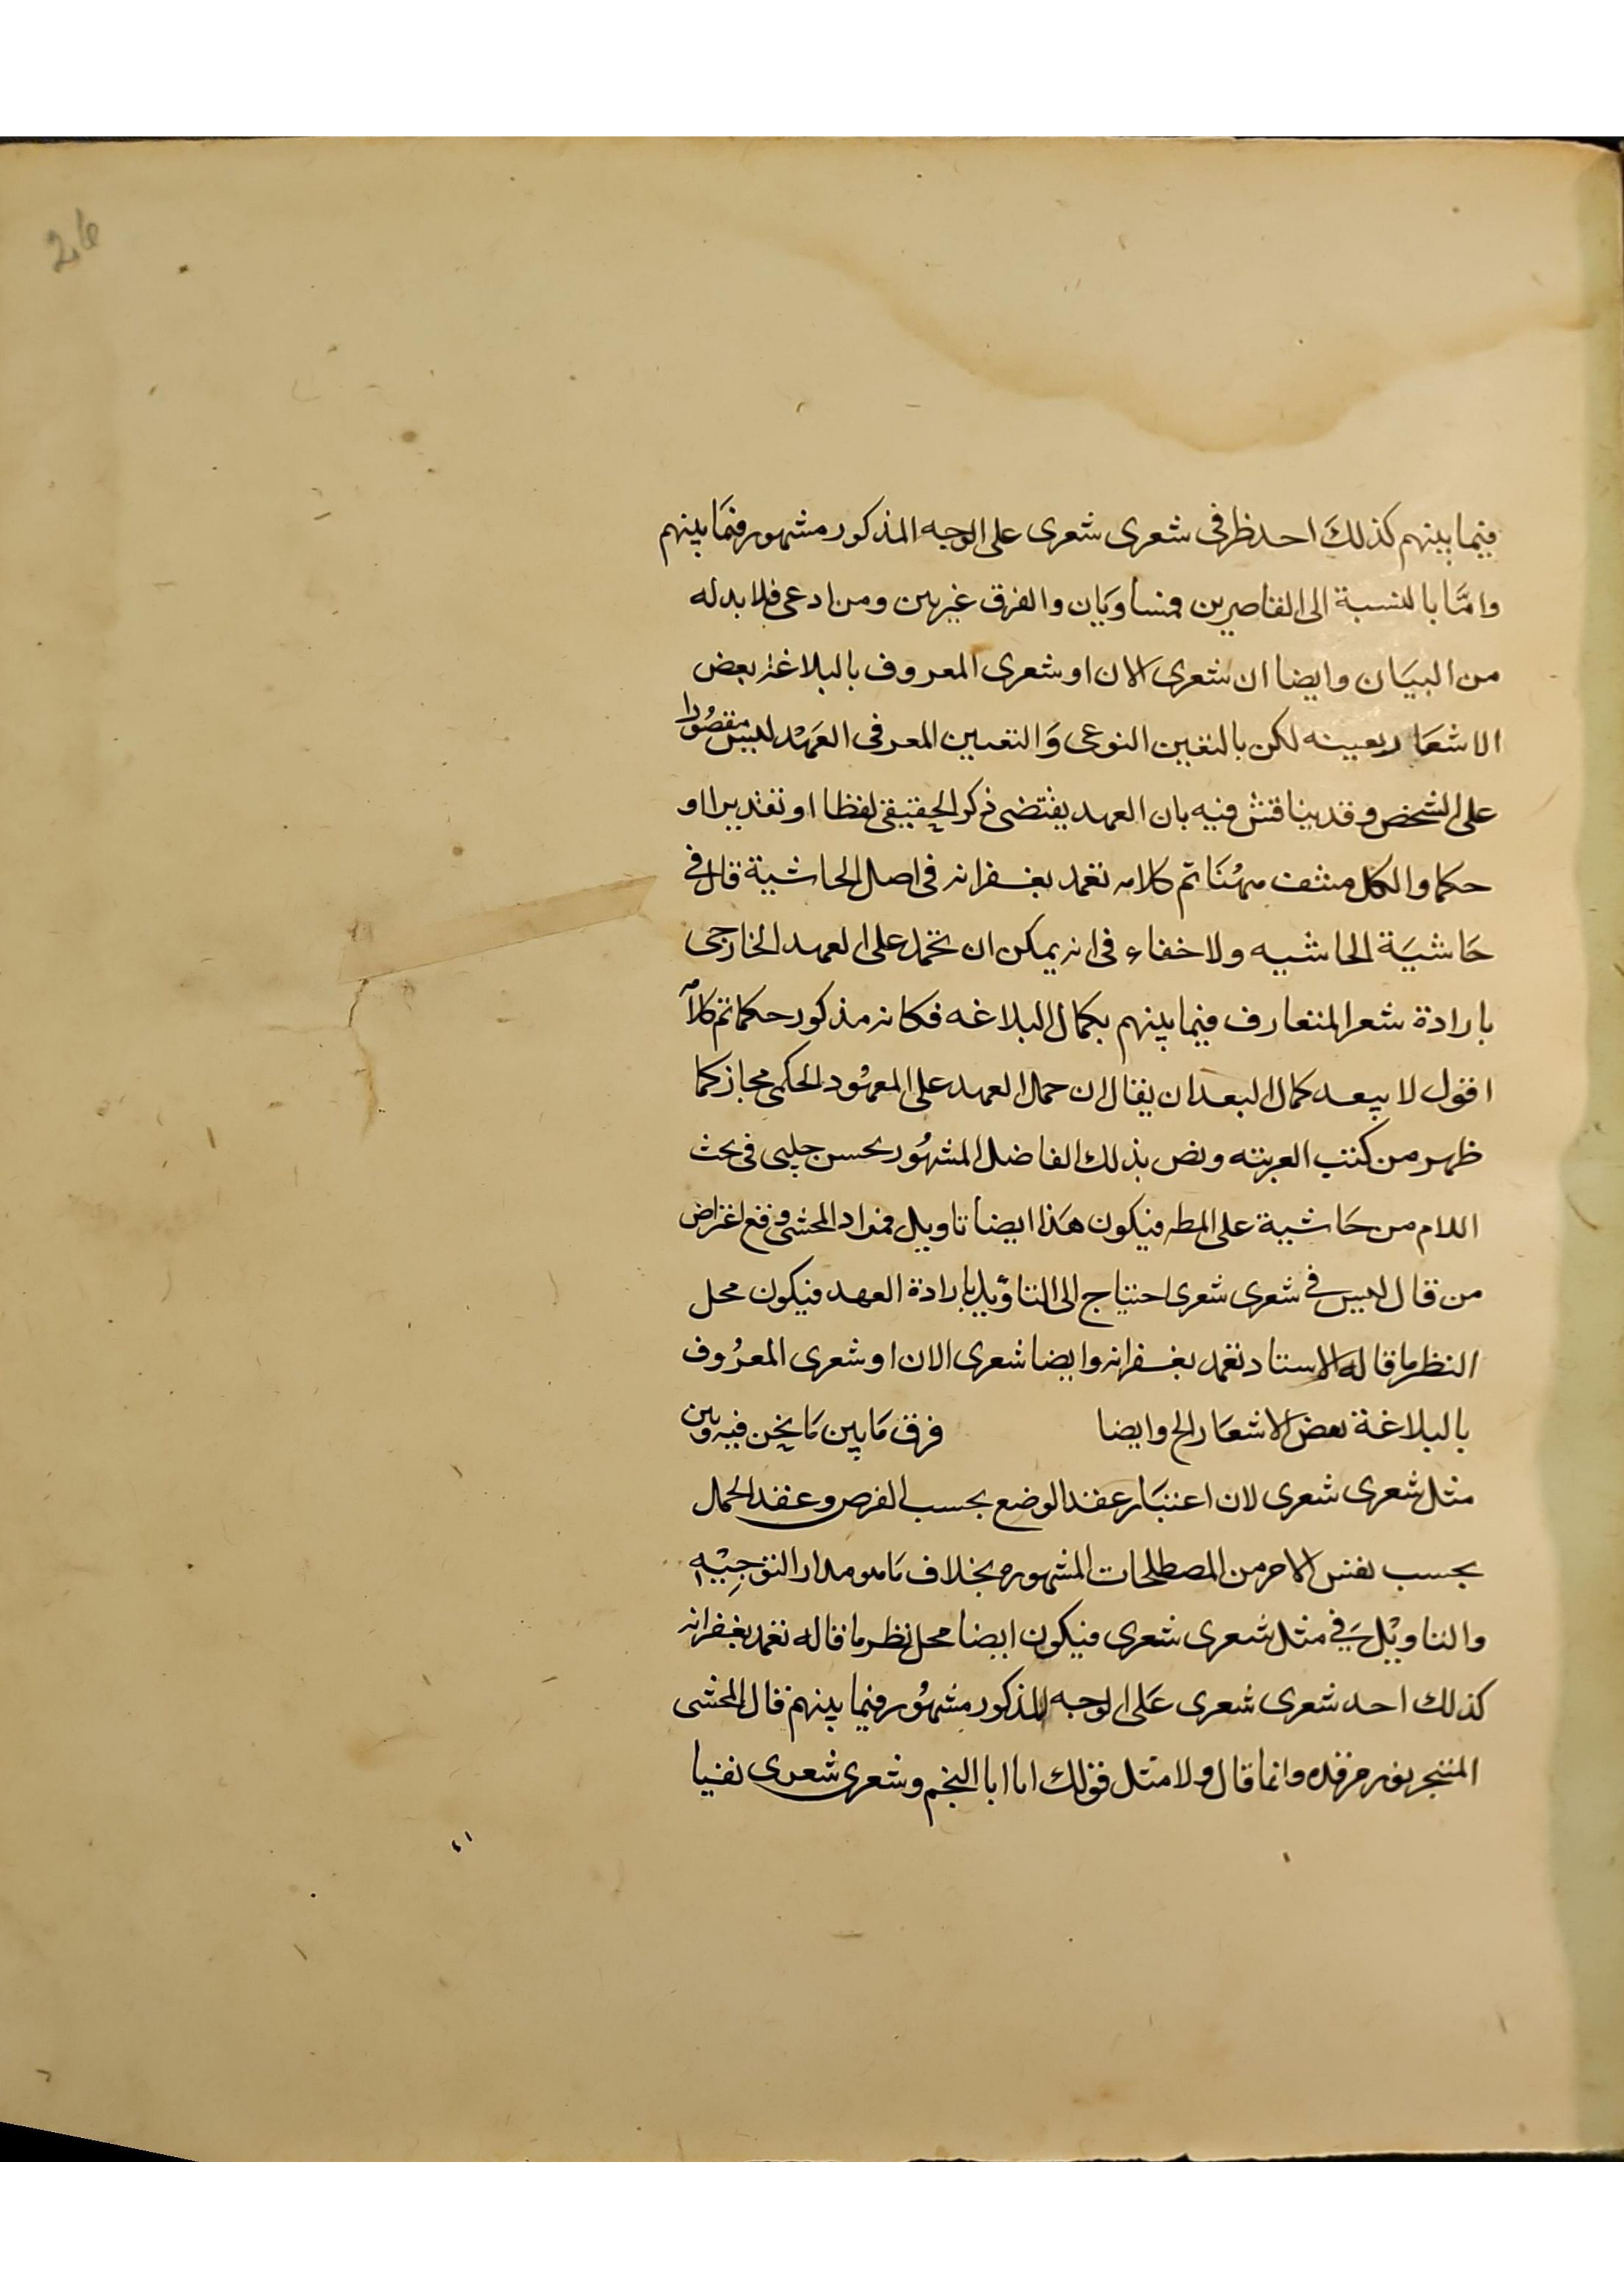 26
فيما بينهم كذلك احد ظرفى شعرى شعرى على الوجه المذكور مشهور فيما بينهم
وامّا بالنسبة الى القاصرين فمتساويان والفرق غير بين ومن ادعى فلا بد له
من البيان وايضا ان شعرى الان او شعرى المعروف بالبلاغة بعض
الاشعار بعينه لكن بالتعين النوعى والتعيين المعرفى العهد ليس مقصورا
على الشخص وقد يناقش فيه بان العهد يقتضى ذكر الحقيقى لفظا او تقديرا او
حكما والكل منتف ههنا تم كلامه تغمد بغفرانه فى اصل الحاشية قال فى
حاشية الحاشيه ولا خفاء فى انه يمكن ان تحمد على العهد الخارجى
بارادة شعر المتعارف فيما بينهم بكمال البلاغه فكانه مذكور حكما تم كلامه
اقول لا يبعد كمال البعد ان يقال ان حمال العهد على المعهود الحكمى مجاز كما
ظهر من كتب العربيه ونص بذلك الفاضل المشهور بحسن چلپى فى بحث
اللام من حاشية على المطه فيكون هذا ايضا تاويل فمراد المحشى وقع اعتراض
من قال ليس فى شعرى شعرى احتياج الى التاويل بارادة العهد فيكون محل
النظر ما قاله الاستاد تغمد بغفرانه وايضا شعرى الان او شعرى المعروف
بالبلاغة بعض الاشعار الخ وايضا فرق ما بين ما يخن فيه وبين
مثل شعرى شعرى لان اعتبار عقد الوضع بحسب الفرض وعقد الحمال
بحسب نفس الامر من المصطلحات المشهوره بخلاف ما هو مدار التوجيه
والتاويل فى مثل شعرى شعرى فيكون ايضا محل نظر ما قاله تغمد بغفرانه
كذلك احد شعرى شعرى على الوجه المذكور مشهور فيما بينهم قال المحشى
المتبحر نور مرقده وانما قال ولا مثل قولك اما ابا النجم وشعرى شعرى نفيا